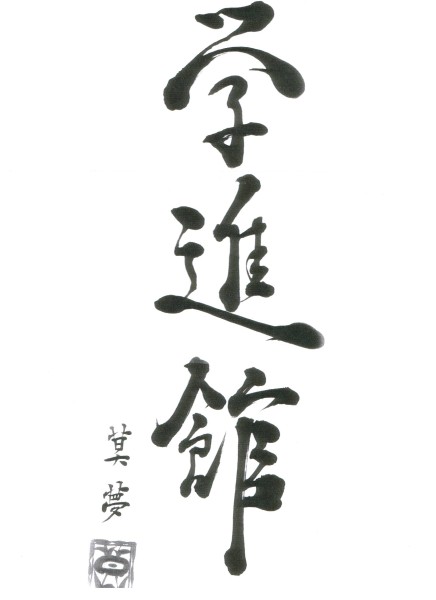 学進館
莫夢